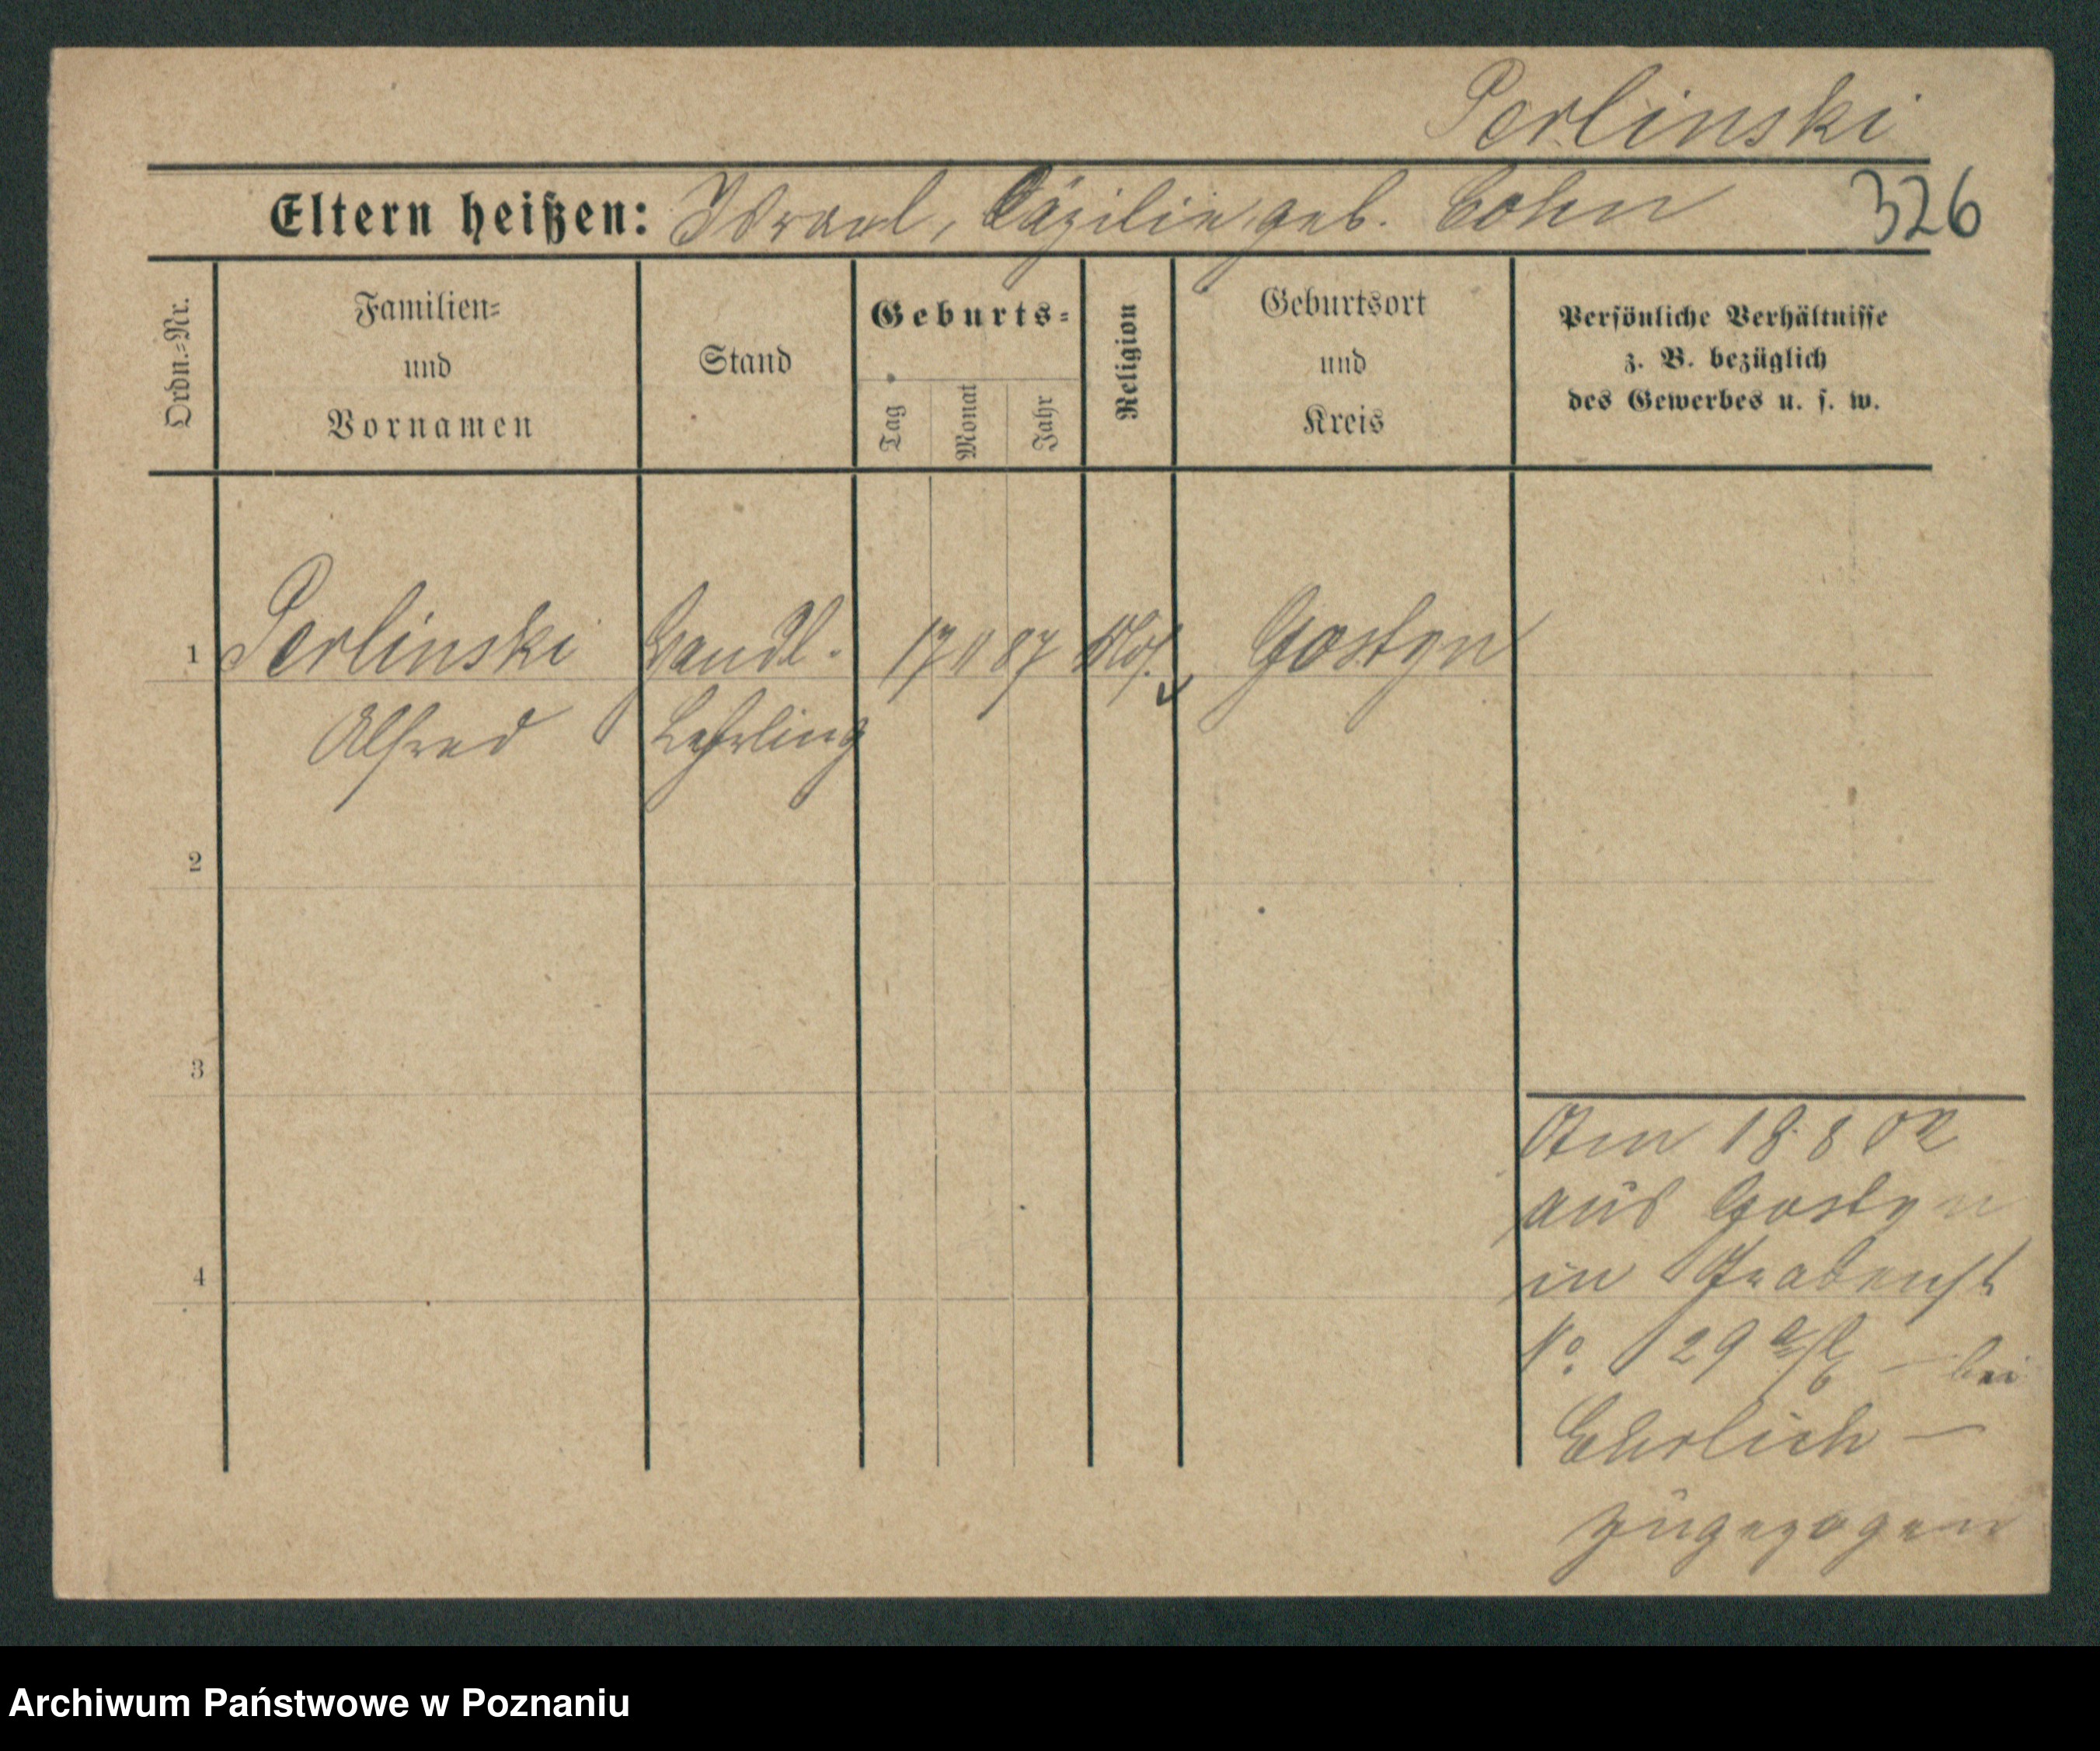 Perlinski
Eltern heißen: Israel, Cäzilie geb. Cohn 326
Ordn.-Nr.
Familien-
und
Vornamen
Stand
Geburts-
Tag
Monat
Jahr
Religion
Geburtsort
und
Kreis
Persönliche Verhältnisse
z. B. bezüglich
des Gewerbes u. s. w.
1 Perlinski Handl. 17 11 87 Mos. Gostyn
Alfred Lehrling
2
3
4
Am 18. 8 02
aus Gostyn
in Grabenst
No. 29 – bei
Ehrlich –
zugezogen
Archiwum Państwowe w Poznaniu